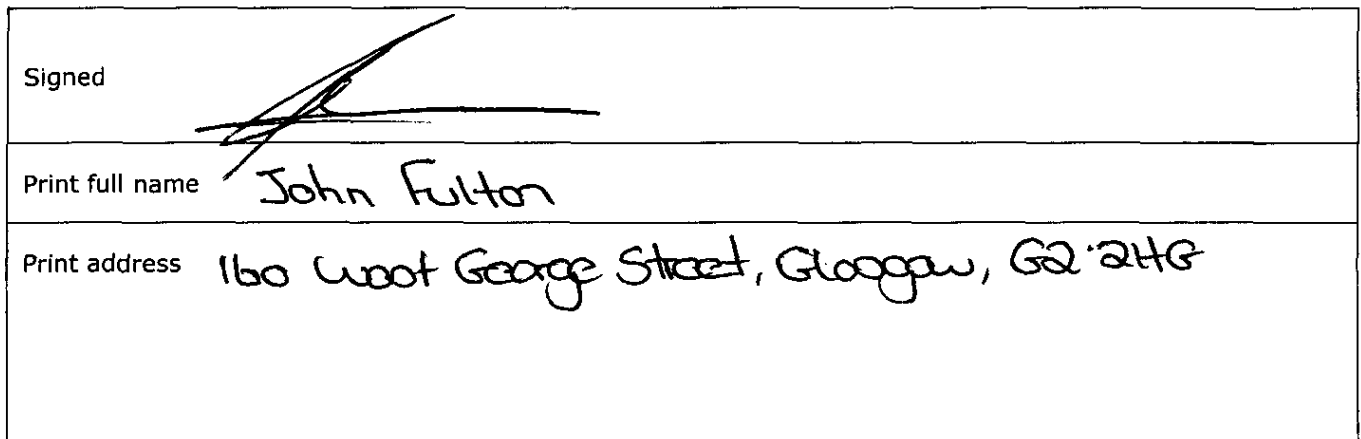 Signed
Print full name John Fulton
Print address 160 West George Street, Glasgow, G2 2HG